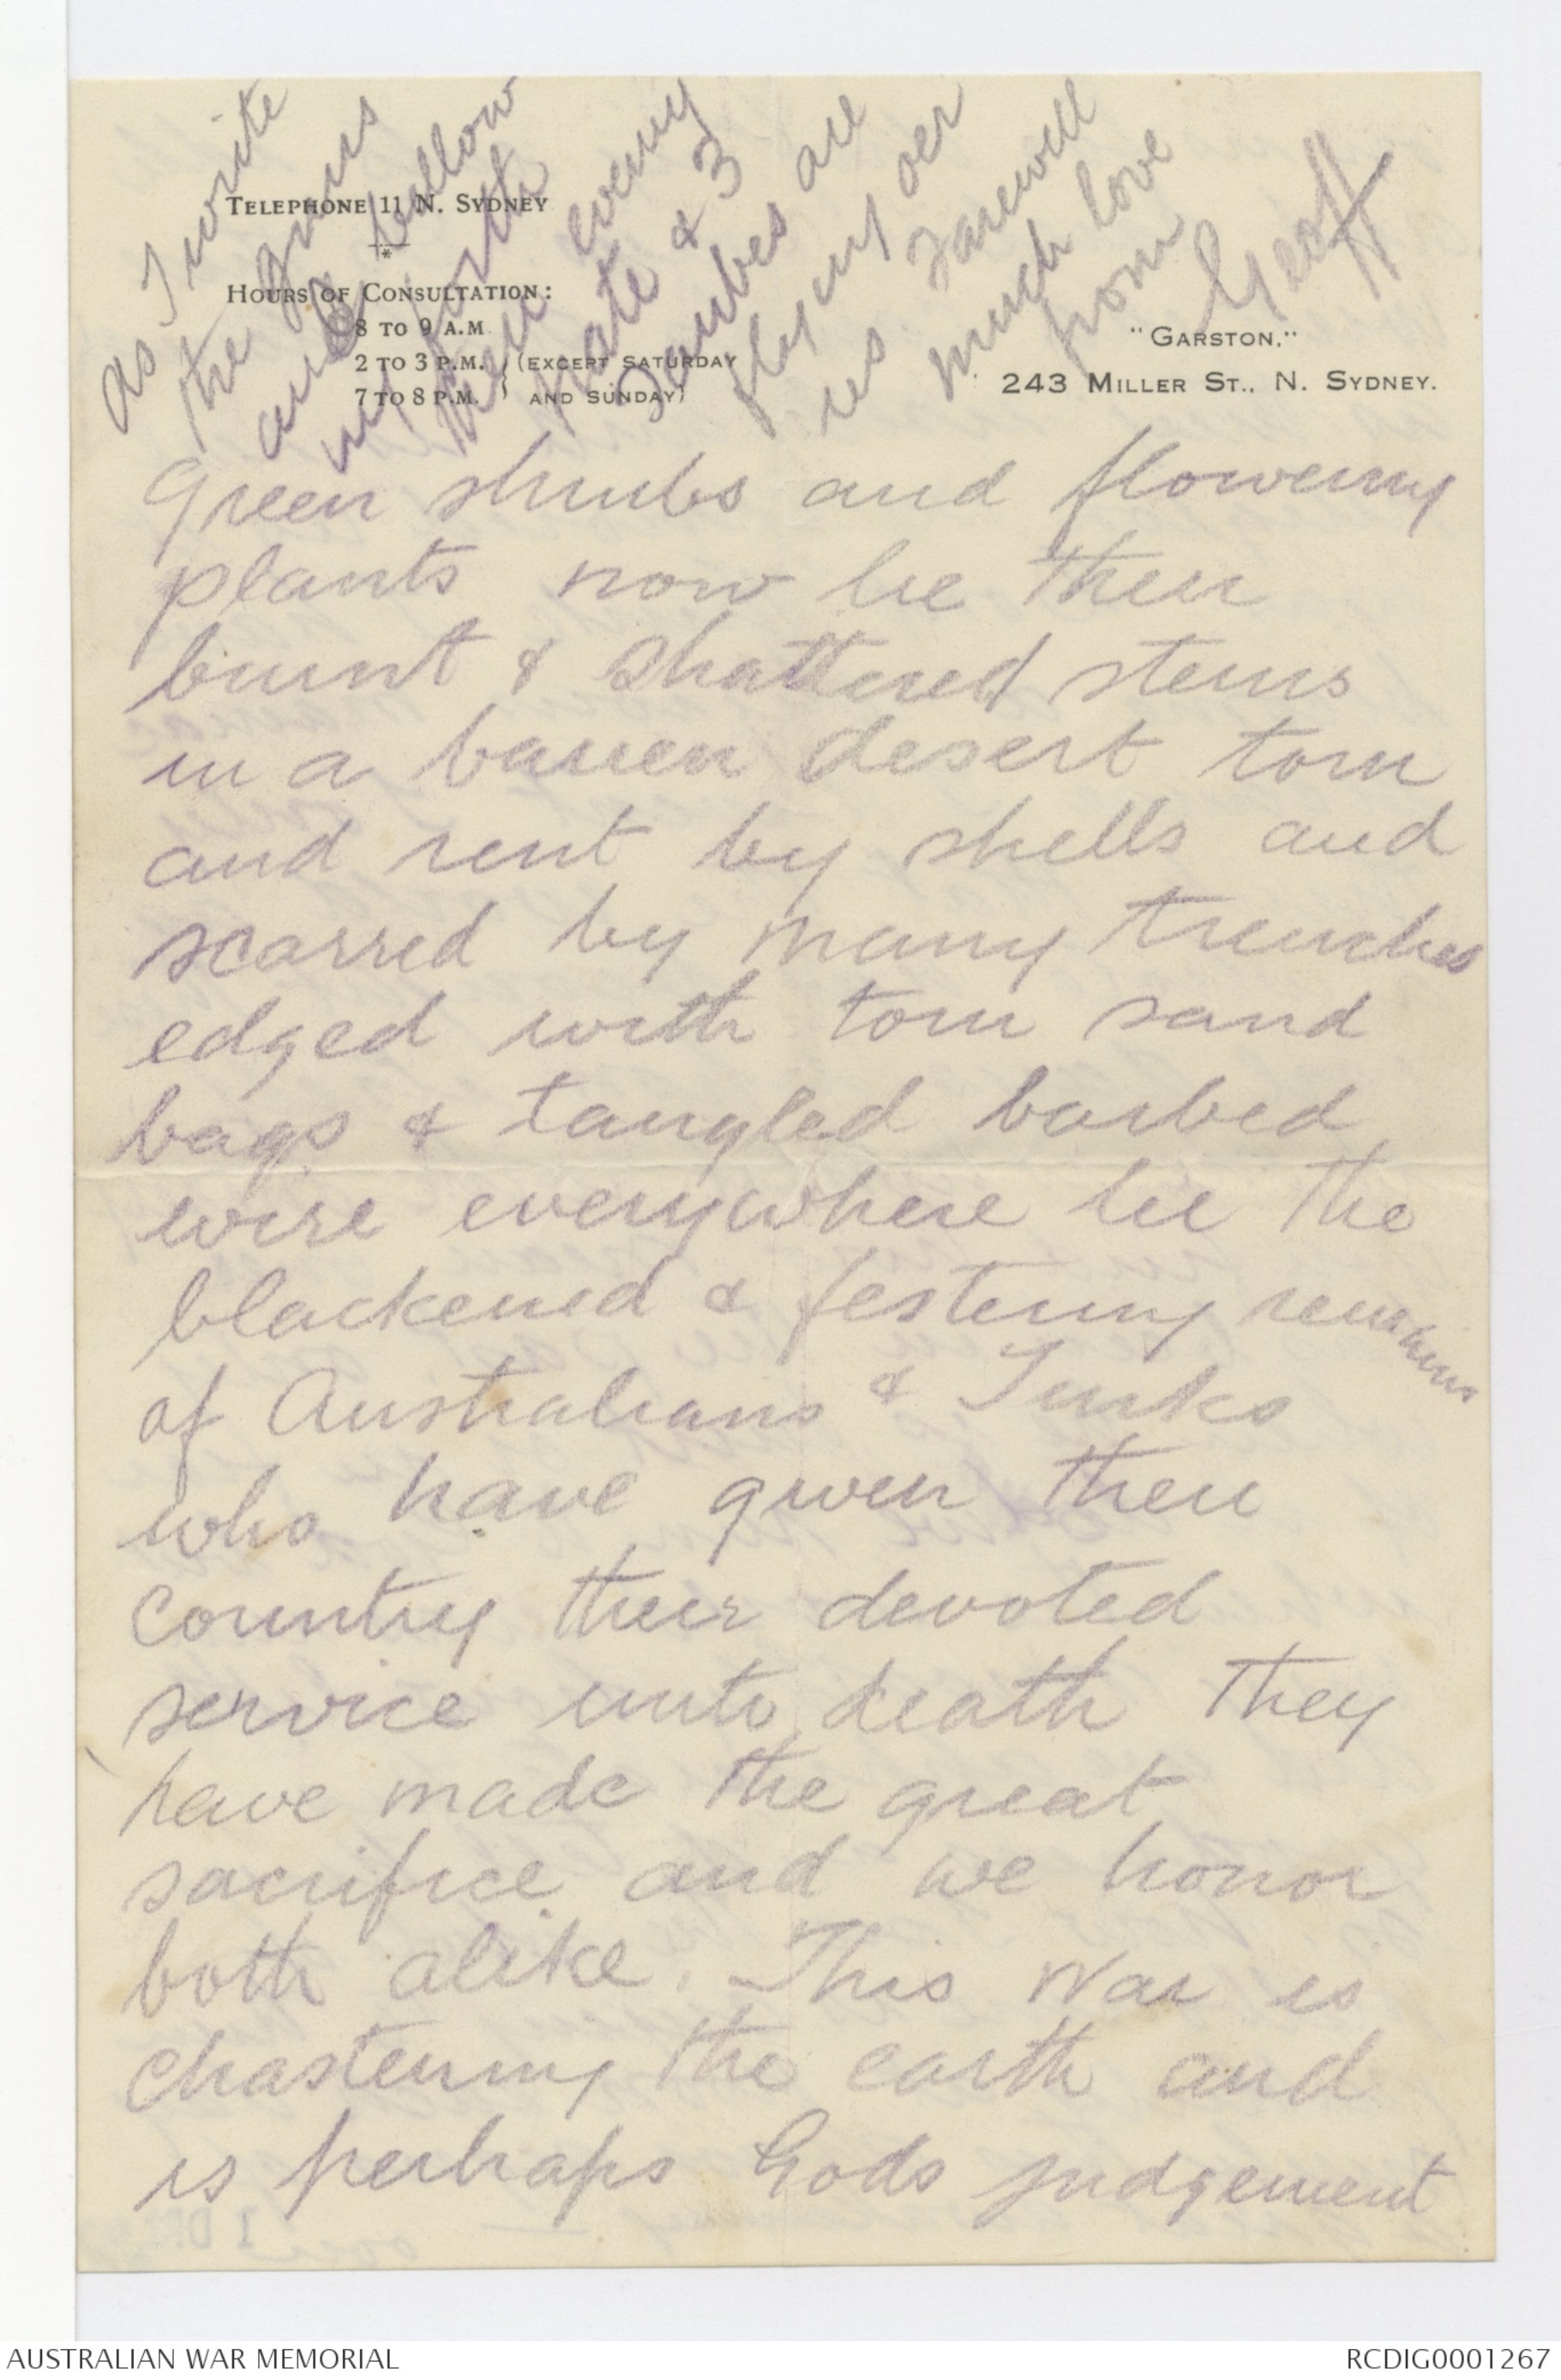 as I write
the guns
are bellow
ing forth
their evening
hate & 3
Taubes are
flying over
us Farewell
much love
from
Geoff
TELEPHONE 11 N. SYDNEY
*
HOURS OF CONSULTATION:
8 TO 9 A.M.
2 TO 3 P.M. } (EXCEPT SATURDAY
7 TO 8 P.M. } AND SUNDAY)
"GARSTON,"
243 MILLER ST., N. SYDNEY.
Green shrubs and flowering
plants now lie their
burnt & shattered stems
in a barren desert torn
and rent by shells and
scarred by many trenches
edged with torn sand
bags & tangled barbed
wire everywhere lie the
blackened & festering remains
of Australians & Turks
who have given their
country their devoted
service unto death They
have made the great
sacrifice and we honor
both alike. This War is
chastening the earth and
is perhaps Gods judgement
AUSTRALIAN WAR MEMORIAL
RCDIG0001267